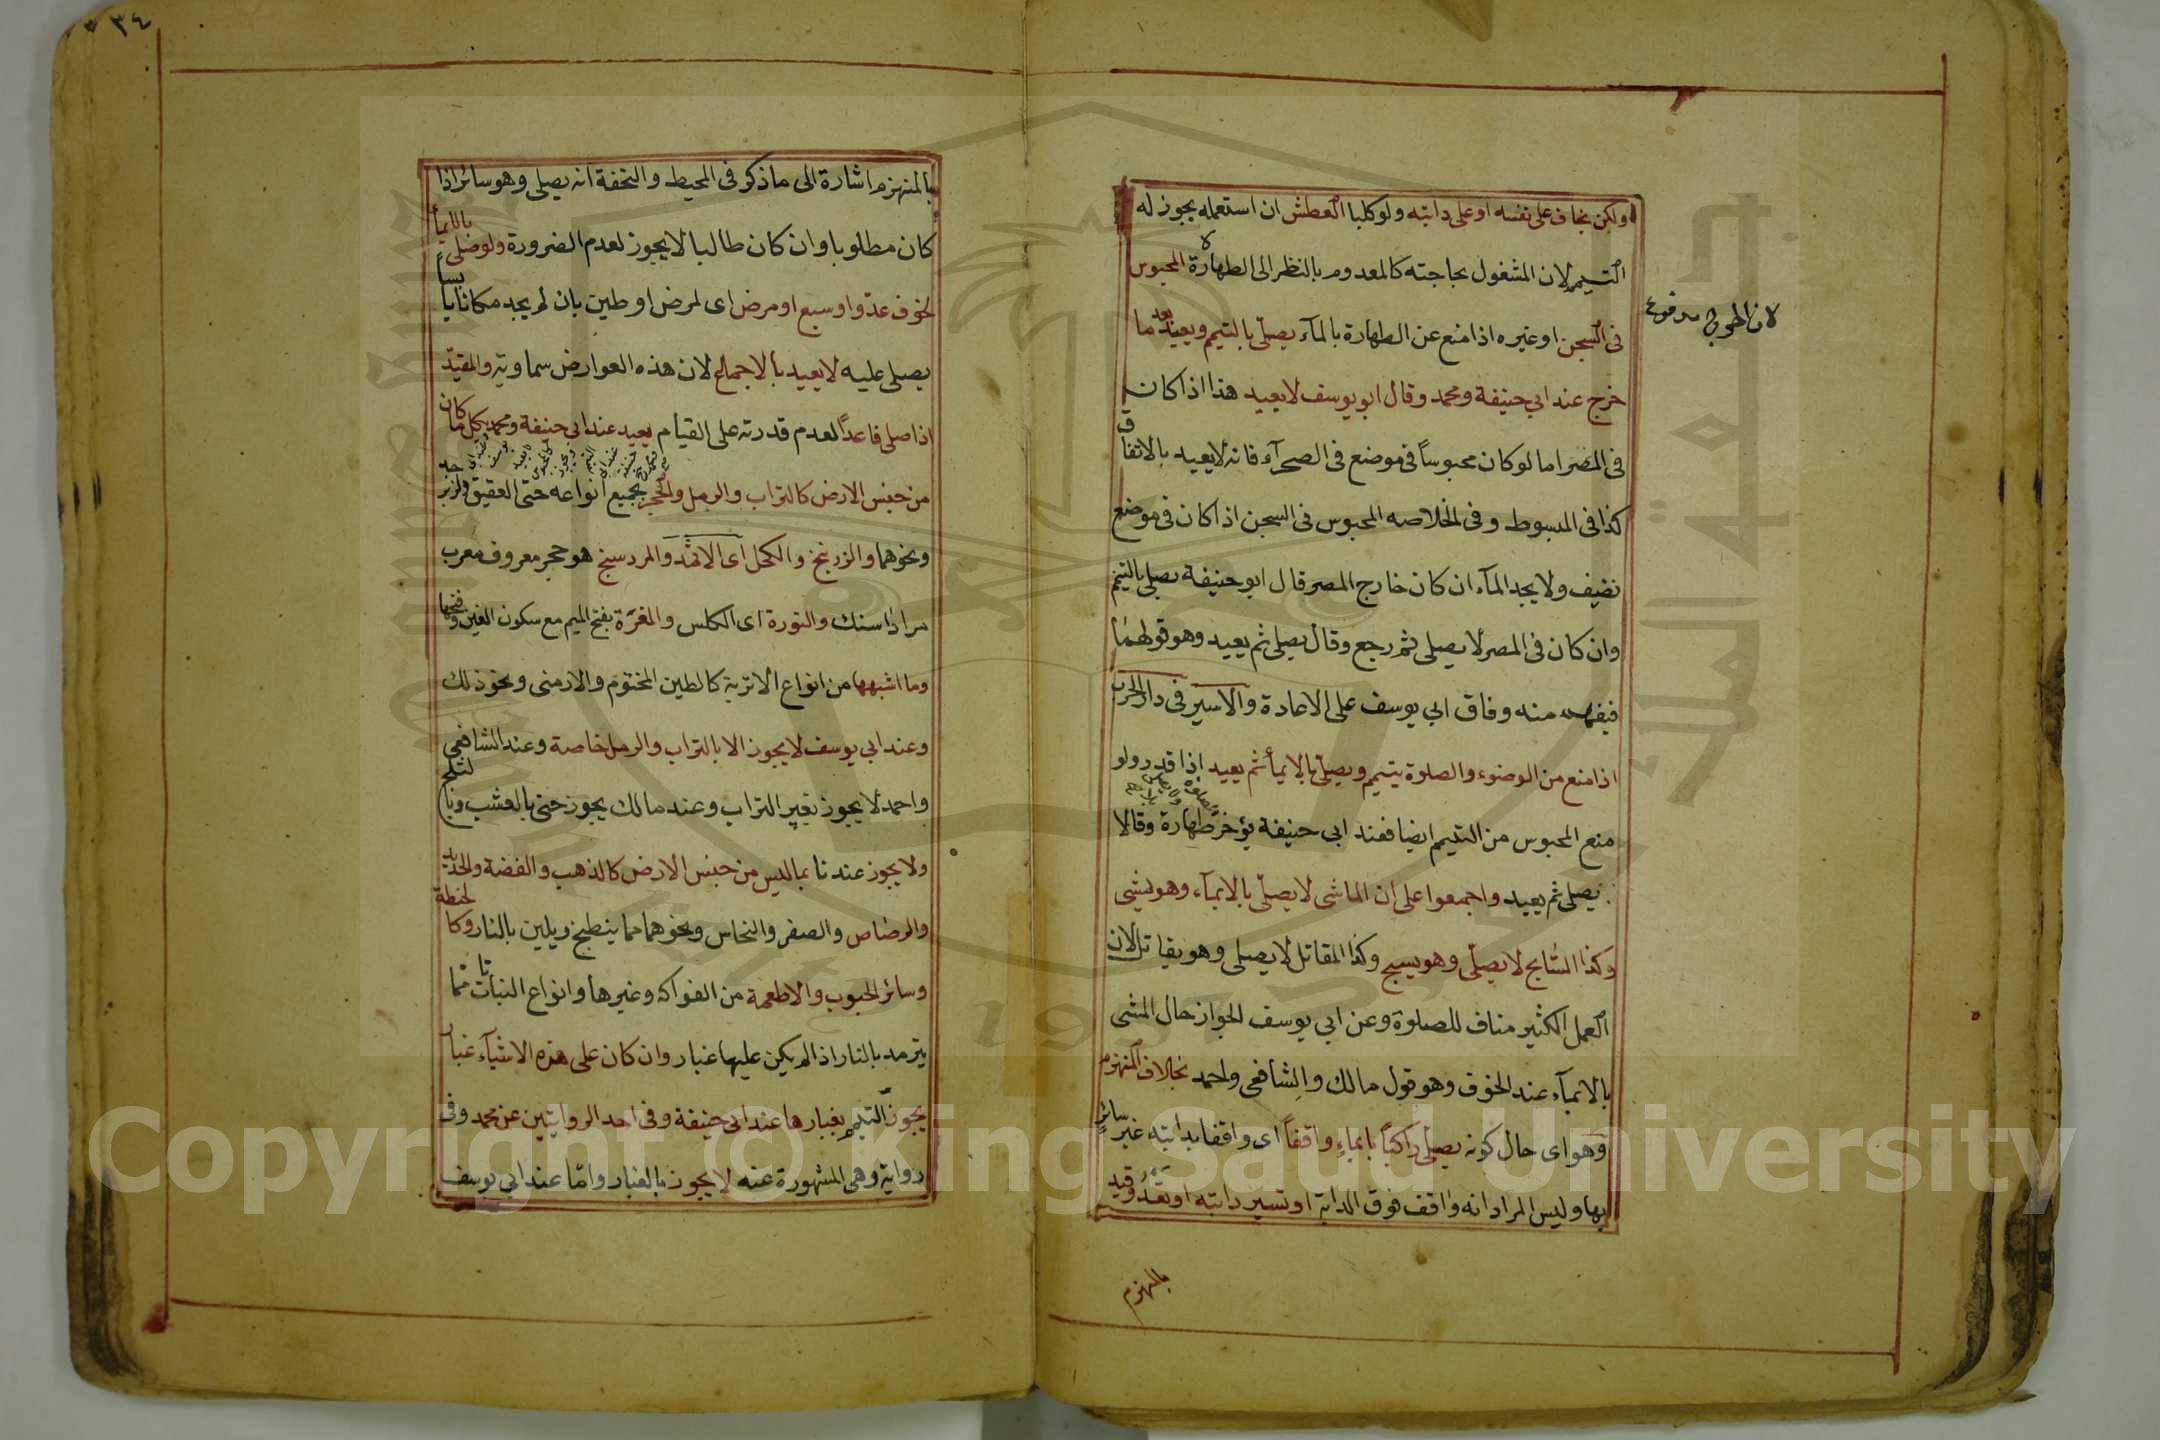 ولكن يخاف على نفسه او على دابته ولو كلبا العطش ان استعمله يجوز له
التيمم لان المشغول بحاجته كالمعدوم بالنظر الى الطهارة المحبوس
لان الحرج مدفوع
فى السجن او غيره اذا منع عن الطهارة بالمآء يصلى بالتيمم ويعيد بعد ما
خرج عند ابي حنيفة ومحمد وقال ابو يوسف لا يعيد هذا اذا كان
فى المصر اما لو كان محبوساً فى موضع فى الصحرآء فانه لا يعيد بالاتفاق
كذا فى المبسوط وفى الخلاصه المحبوس فى السجن اذا كان فى موضع
نضيف ولا يجد المآء ان كان خارج المصر قال ابو حنيفة يصلى بالتيمم
وان كان فى المصر لا يصلى ثم رجع وقال يصلى ثم يعيد وهو قولهما
فيفهم منه وفاق ابي يوسف على الاعادة والاسير فى دار الحرب
اذا منع من الوضوء والصلوة يتيمم ويصلى بالايمأ ثم يعيد اذا قدر ولو
منع المحبوس من التيمم ايضا فعند ابى حنيفة يؤخر طهارة وقالا
يصلى ثم يعيد واجمعوا على ان الماشى لا يصلى بالايمآء وهو يمشى
وكذا السابح لا يصلى وهو يسبح وكذا المقاتل لا يصلى وهو يقاتل لان
العمل الكثير مناف للصلوة وعن ابي يوسف الجواز حال المشى
بالايمآء عند الخوف وهو قول مالك والشافعى واحمد بخلاف المنهزم
وهو اى حال كونه يصلى راكباً بايماء واقفاً اى واقفا بدابته غير سائر
بها وليس المراد انه واقف فوق الدابة او تسير دابته او تعدو قيد
بالمنهزم
٣٤
بالمنهزم اشارة الى ما ذكر فى المحيط والتحفة انه يصلى وهو سائر اذا
كان مطلوبا وان كان طالبا لا يجوز لعدم الضرورة ولو صلى بالايمأ
لخوف عدو او سبع او مرض اى لمرض او طين بان لم يجد مكانا يابسا
يصلى عليه لا يعيد بالاجماع لان هذه العوارض سماوية والمقيد
اذا صلى قاعداً لعدم قدرته على القيام يعيد عند ابى حنيفة ومحمد بكل ما كان
من جنس الارض كالتراب والرمل والحجر بجميع انواعه حتى العقيق والزبرجد
ونحوهما والزرنيخ والكحل اى الاثمد والمردسنج هو حجر معروف معرب
مراداسنك والنورة اى الكلس والمغرة بفتح الميم مع سكون الغين وفتحها
وما اشبهها من انواع الاتربة كالطين المختوم والارمنى ونحو ذلك
وعند ابي يوسف لا يجوز الا بالتراب والرمل خاصة وعند الشافعى
واحمد لا يجوز بغير التراب وعند مالك يجوز حتى بالعشب وبالثلج
ولا يجوز عندنا بما ليس من جنس الارض كالذهب والفضة والحديد
والرصاص والصفر والنحاس ونحوهما مما ينطبخ ويلين بالنار وكالحنطة
وسائر الحبوب والاطعمة من الفواكه وغيرها وانواع النباتات مما
يترمد بالنار اذا لم يكن عليها غبار وان كان على هذه الاشيآء غبار
يجوز التيمم بغبارها عند ابى حنيفة وفى احد الروايتين عن محمد وفى
رواية وهى المشهورة عنه لا يجوز بالغبار واما عند ابى يوسف
Copyright © King Saud University